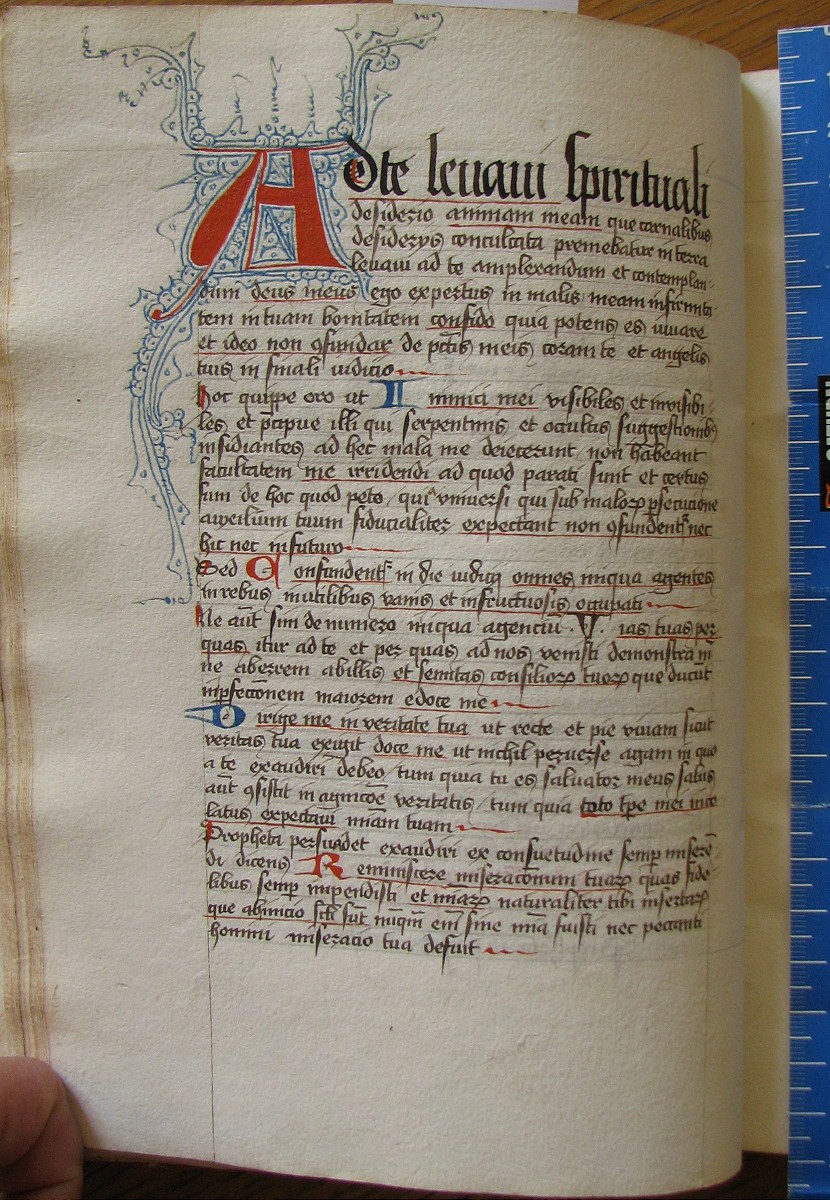 Ad te levavi spirituali
desiderio animam meam que carnalibus
desiderys conculcata premebatur in terra
levavi ad te amplexandum et contemplan-
dum deus meus ego expertus in malis meam infirmita
tem in tuam bonitatem confido quia potens es iuvare
et ideo non ꝯfundar de pctis meis coram te et angelis
tuis in finali iudicio
hoc quippe oro ut Inimici mei visibiles et invisibi-
les et pcipue illi qui serpentinis et occultis suggestionibꝫ
insidiantes ad hec mala me deiecerunt non habeant
facultatem me irridendi ad quod parati sunt et certus
sum de hoc quod peto universi qui sub maloꝝ ꝑsecucione
auxilium tuum fiducialiter expectant non ꝯfundent nec
hic nec in futuro
Sed Confundent in die iudicy omnes iniqua agentes
in rebus inutilibus vanis et infructuosis occupati
Ne aut sim de numero iniqua agenciu . Vias tuas per
quas itur ad te et per quas ad nos venisti demonstra m
ne aberrem ab illis et semitas consilioꝝ tuoꝝ que ducut
in ꝑfectionem maiorem edoce me
Dirige me in veritate tua ut recte et pie vivam sicut
veritas tua exigit doce me ut nichil perverse agam in quo
a te exaudiri debeo tum quia tu es salvator meus salus
aut ꝯsistit in agnicoe veritatis tum quia toto tpe mei inco
latus expectavi miam tuam
Propheta persuadet exaudiri ex consuetudine semꝑ misere
di dicens Reminiscere miseraconum tuaꝝ quas fide-
libus semꝑ impendisti et miaꝝ naturaliter tibi insertaꝝ
que ab inicio scli sut nuqm em sine mia fuisti nec peccanti
homini miseracio tua defuit